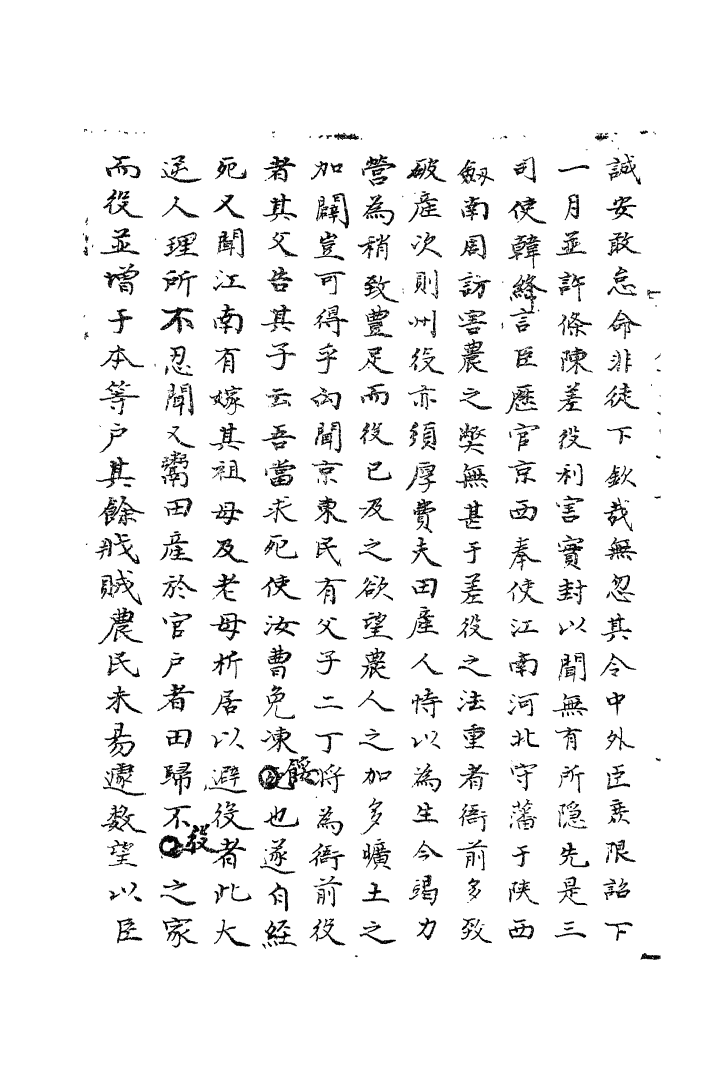 誠安敢怠命非徒下欽哉無忽其令中外臣庶限詔下
一月並許條陳差役利害實封以聞無有所隱先是三
司使韓絳言臣歷官京西奉使江南河北守藩于陝西
劔南周訪害農之獘無甚于差役之法重者衙前多致
破產次則州役亦須厚費夫田產人恃以為生今竭力
營為稍致豊足而役已及之欲望農人之加多曠土之
加闢豈可得乎向聞京東民有父子二丁將為衙前役
者其父告其子云吾當求死使汝曹免凍餒也遂自經
死又聞江南有嫁其祖母及老母析居以避役者此大
逆人理所不忍聞又鬻田產於官戶者田歸不役之家
而役並增于本等戶其餘戕賊農民未易遽数望以臣